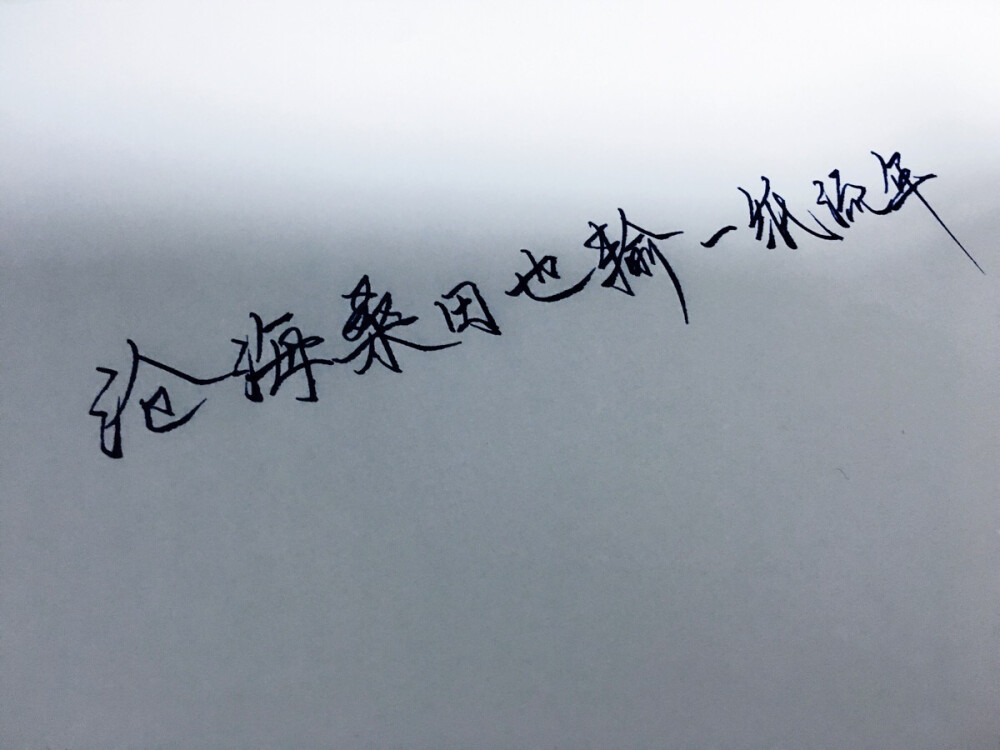 沧海桑田也输一纸流年